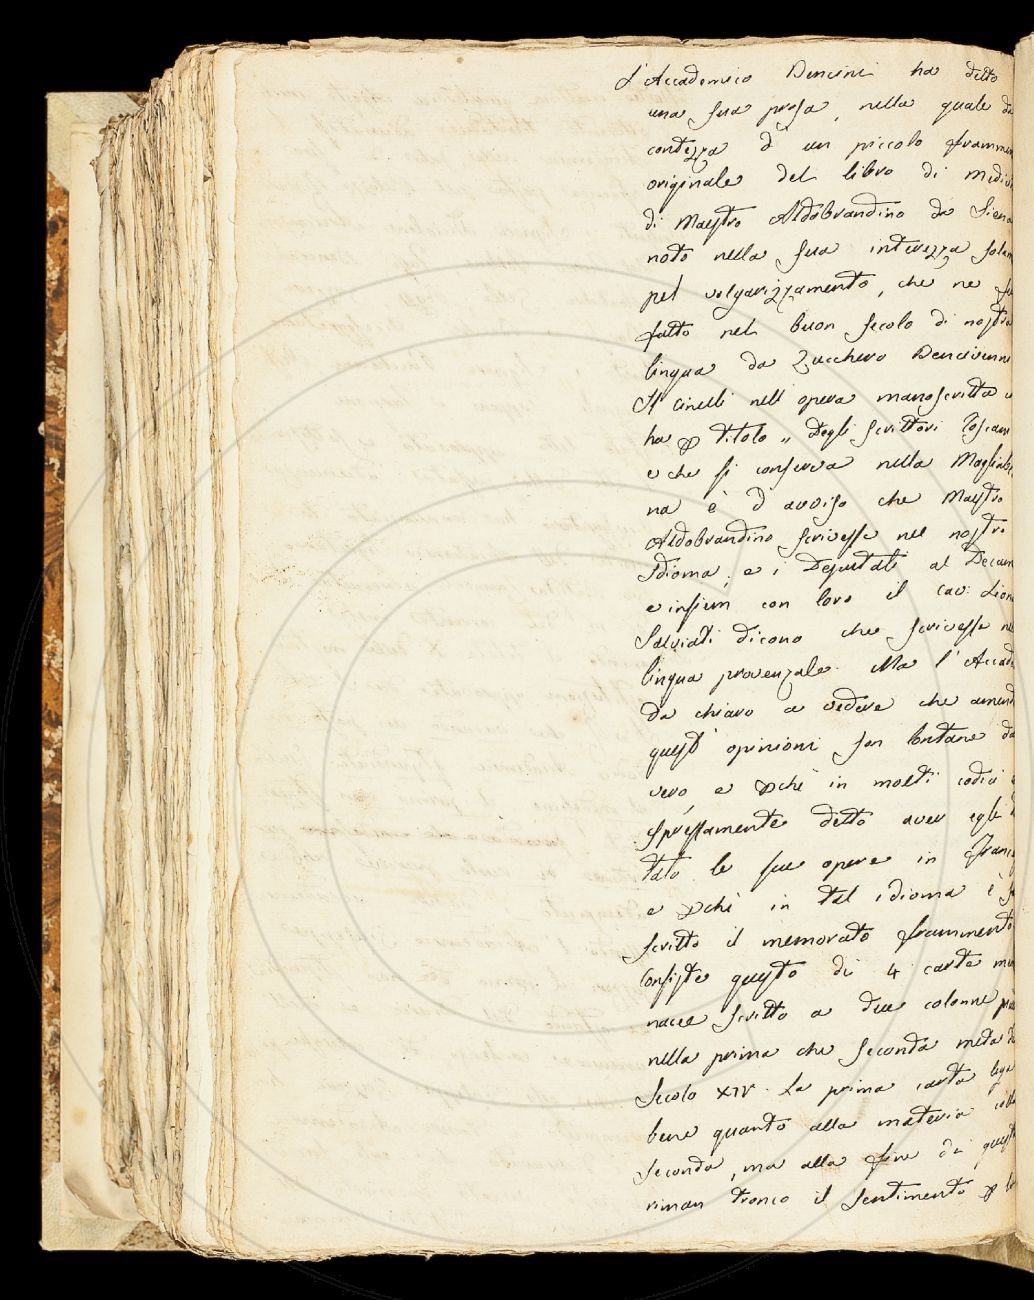 L'Accademico Bencini ha detto
una sua prosa, nella quale dà
contezza d'un piccolo framm
originale del libro di Medici
di Maestro Aldobrandino da Siena
noto nella sua interezza solam
pel volgarizzamento, che ne fu
fatto nel buon secolo di nostra
lingua da Zucchero Bencivenni
Il Cinelli nell'opera manoscritta
ha ꝑ titolo „ Degli Scrittori Toscani
e che si conserva nella Magliabe
na è d'avviso che Maestro
Aldobrandino scrivesse nel nostro
Idioma; e i Deputati al Decam
e insiem con loro il Cav: Lion
Salviati dicono che scrivesse ne
lingua provenzale. Ma l'Accad
da chiaro a vedere che amend
quest'opinioni son lontane da
vero e ꝑchè in molti codici
spressamente detto aver egli
tato le sue opere in Franc
e ꝑchè in tal idioma è
scritto il memorato frammento
Consiste questo di 4 carte m
nacee scritto a due colonne
nella prima che seconda metà d
Secolo XIV. La prima carta lega
bene quanto alla materia colla
seconda, ma alla fine di questa
riman tronco il sentimento ꝑ